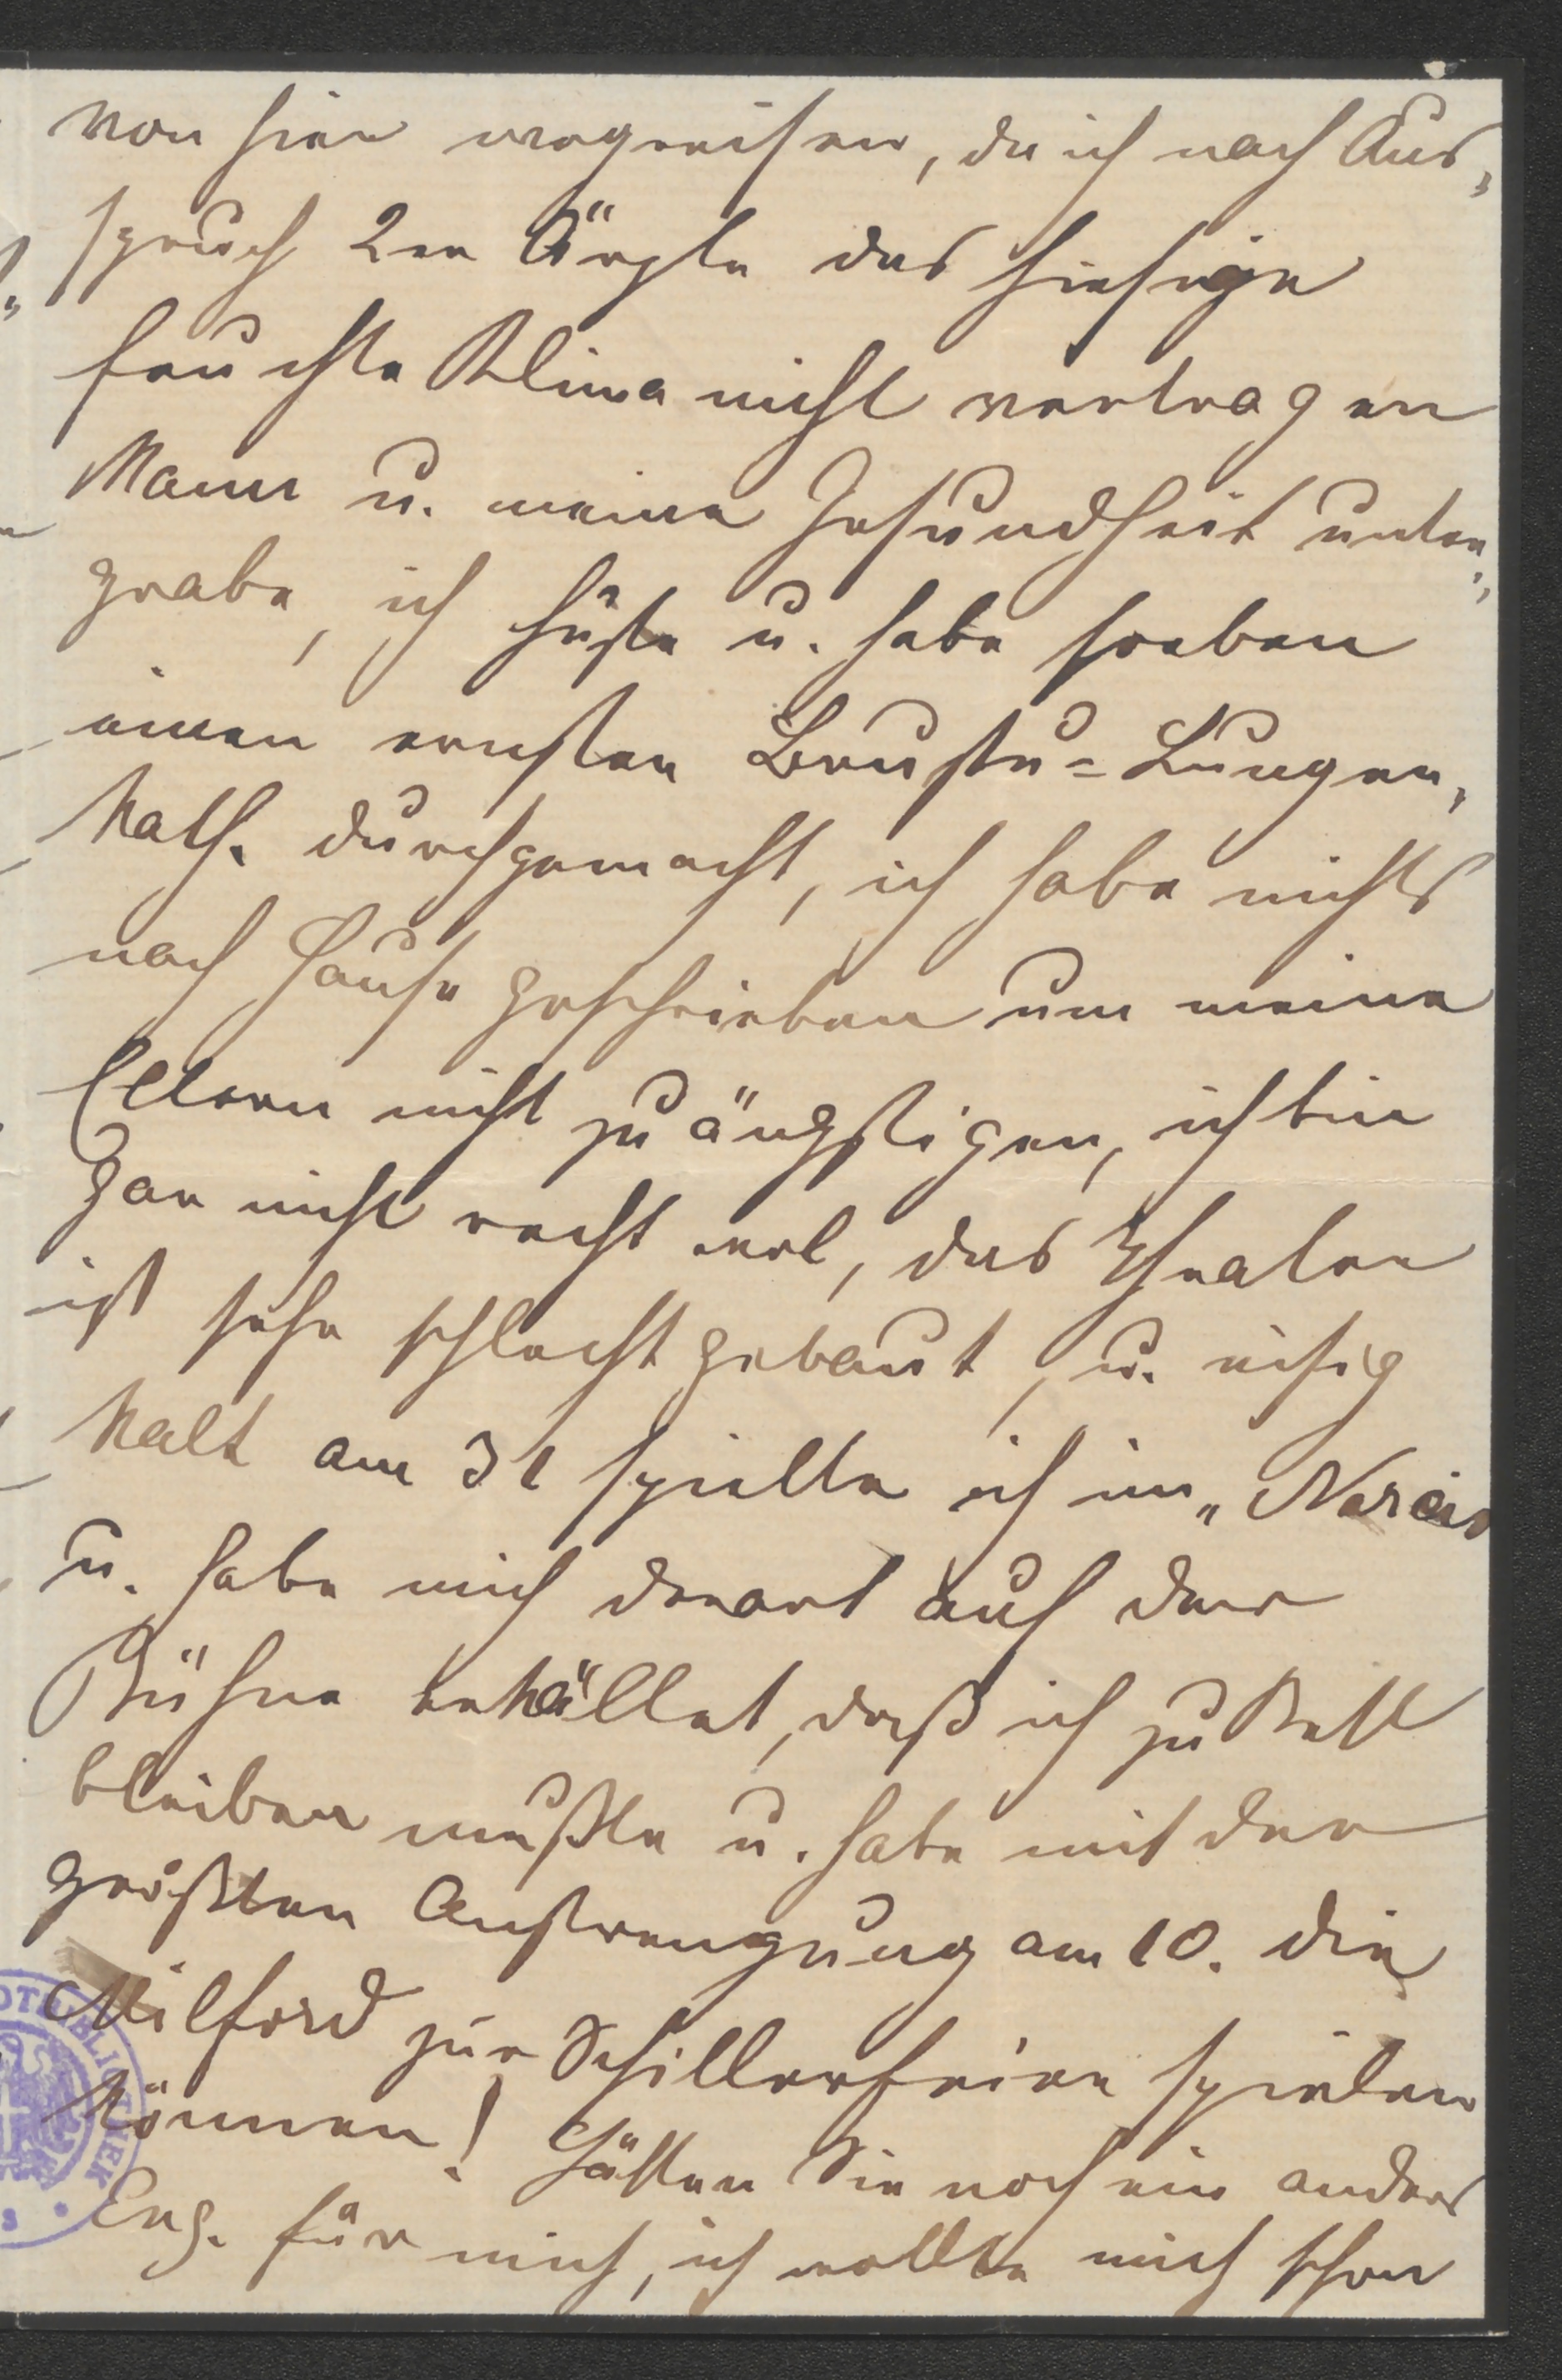 von hier wegreisen, da ich nach Aus,
spruch 2er Ärzte das hiesige
feuchte Klima nicht vertragen
kann u. meine Gesundheit unter,
grabe, ich huste u. habe soeben
einen ernsten Brust u = Lungen,
kath. durchgemacht, ich habe nichts
nach Hause geschrieben um meine
Eltern nicht zu ängstigen, ich bin
gar nicht recht wol, das Theater
ist sehr schlecht gebaut, u. eisig
kalt am 31 spielte ich im „Narciss
u. habe mich derart auf der
Bühne erkältet, daß ich zu Bett
bleiben mußte u. habe mit der
größten Anstrengung am 10. die
Milford zur Schillerfeier spielen
können! Hätten Sie noch ein anders
Eng. für mich, ich wollte mich schon